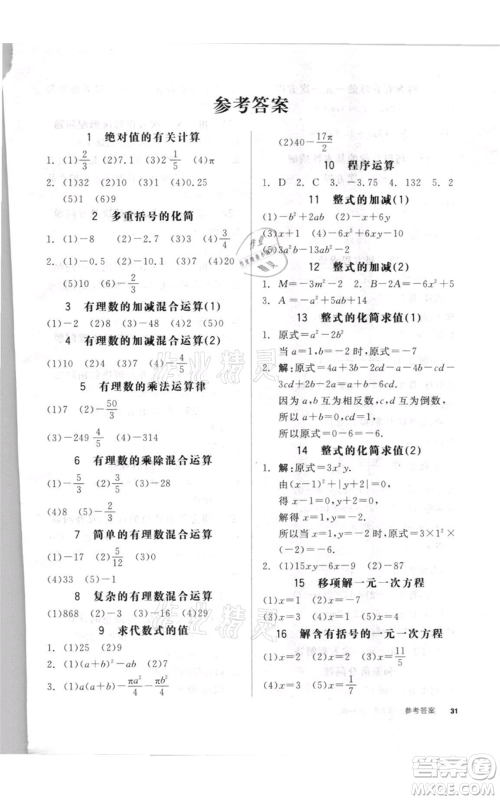 参考答案
1 绝对值的有关计算
1. (1)2/3 (2)7.1 (3)2 1/5 (4)π
2. (1)32 (2)10 (3)10 (4)0.25
(5)1 (6)9
2 多重括号的化简
1. (1)-8 (2)-2.7 (3)3 (4)-4/5
2. (1)-0.5 (2)-10 (3)-15 (4)-20
(5)10 (6)-1
3 有理数的加减混合运算(1)
(1)-2 (2)8 (3)-48 (4)2
4 有理数的加减混合运算(2)
(1)10 (2)-15 (3)-4 (4)-4/5
5 有理数的乘法运算律
(1)7 (2)-50/3
(3)-249 4/5 (4)-314
6 有理数的乘除混合运算
(1)-5/3 (2)5/3 (3)-9 (4)-8/3
7 简单的有理数混合运算
(1)-17 (2)5/12 (3)-9 (4)-9
8 复杂的有理数混合运算
(1)868 (2)-2 (3)-96 (4)29
9 求代数式的值
1. (1)25 (2)9
2. (1)(a+b)²-ab (2)-5
3. (1)a(a+b)-πa²/4-πb²/4
(2)40-17π/2
10 程序运算
1. D 2. C 3. -3.75 4. 6532 5. 2
11 整式的加减(1)
(1)-b²+2ab (2)-x+6y
(3)x+1 (4)-6x²+6xy-10
(5)3a²b-13ab² (6)x²-3xy+2y²
12 整式的加减(2)
1. M=-3m²-2 2. B-2A=-7x-5y
3. A=-a²+5ab+14
13 整式的化简求值(1)
1. 原式=a²-2b²
当a=1,b=-2时,原式=-7.
2. 解:原式=4a-3cd-2+4b-
3cd+2=4a+4b-6cd.
因为a,b互为相反数,c,d互为倒数,
所以a+b=0,cd=1.
所以原式=0-6=-6.
14 整式的化简求值(2)
1. 解:原式=3x²y.
由(x-1)²+|y+1|=0,
得x-1=0,y+1=0.
解得x=1,y=-1.
当x=1,y=-1时,原式=3×1²×
(-1)=-3.
2. (1)15xy-6x-9 (2)2/5
15 移项解一元一次方程
(1)x=1 (2)x=-7
16 解含有括号的一元一次方程
(1)x=5 (2)x=-1 (3)x=1
(4)x=3 (5)x=7 (6)x=0
参考答案 31
作业精灵